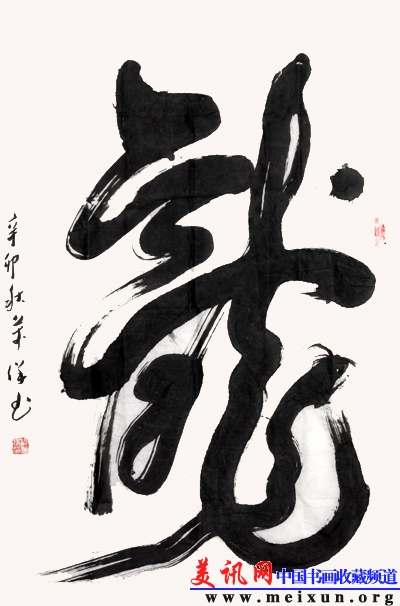 龍
辛卯秋 书
美讯网 中国书画收藏频道
www.meixun.org